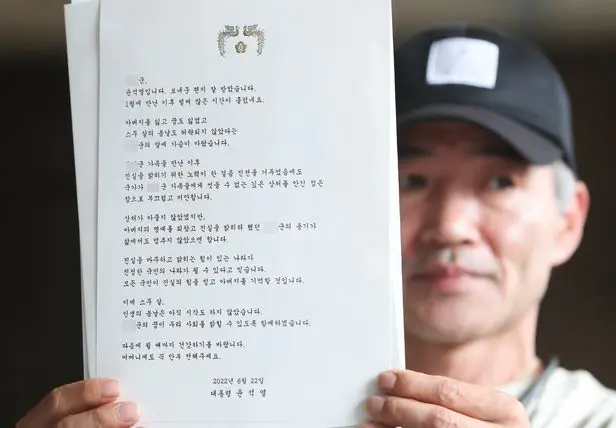 군,
윤석열입니다. 보내준 편지 잘 받았습니다.
1월에 만난 이후 벌써 많은 시간이 흘렀네요.
아버지를 잃고 꿈도 잃었고
스무 살의 봄날도 허락되지 않았다는
군의 말에 가슴이 아팠습니다.
군 가족을 만난 이후
진실을 밝히기 위한 노력이 한 걸음 진전을 거두었음에도
국가가 군 가족들에게 씻을 수 없는 깊은 상처를 안긴 점은
참으로 부끄럽고 미안합니다.
상처가 아물지 않았겠지만,
아버지의 명예를 되찾고 진실을 밝히려 했던 군의 용기가
삶에서도 멈추지 않았으면 합니다.
진실을 마주하고 밝히는 힘이 있는 나라가
진정한 국민의 나라가 될 수 있다고 믿습니다.
모든 국민이 진실의 힘을 믿고 아버지를 기억할 것입니다.
이제 스무 살,
인생의 봄날은 아직 시작도 하지 않았습니다.
군의 꿈이 우리 사회를 밝힐 수 있도록 함께하겠습니다.
다음에 뵐 때까지 건강하기를 바랍니다.
어머니께도 꼭 안부 전해주세요.
2022년 6월 22일
대통령 윤석열